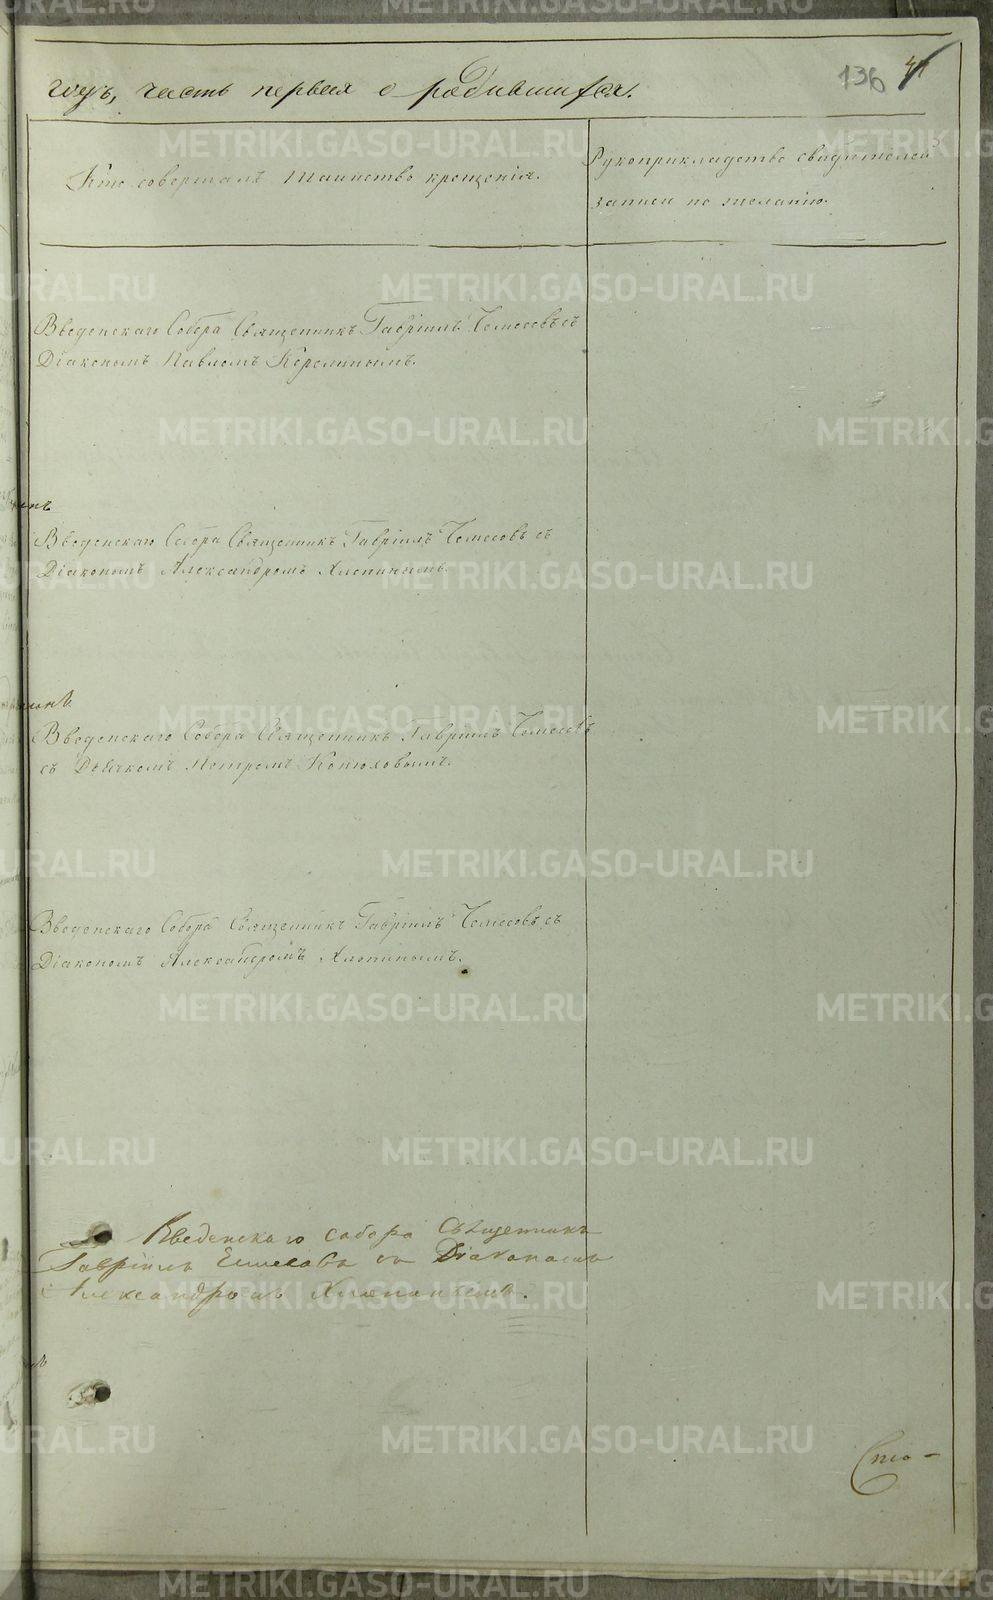 136
годъ, часть первая о родившихся.
Кто совершалъ таинство крещенія.
Рукоприкладство свидѣтелей
записи по желанію.
Введенскаго Собора Священникъ Гавріилъ съ
Діакономъ Павломъ
Введенскаго Собора Священникъ Гавріилъ съ
Діакономъ Александромъ Хлопинымъ.
Введенскаго Собора Священникъ Гавріилъ
съ Дьячкомъ Петромъ Конюховымъ.
Введенскаго Собора Священникъ Гавріилъ съ
Діакономъ Александромъ Хлопинымъ.
Введенскаго собора Священникъ
Гавріилъ съ Діакономъ
Александромъ Хлопинымъ.
METRIKI.GASO-URAL.RU